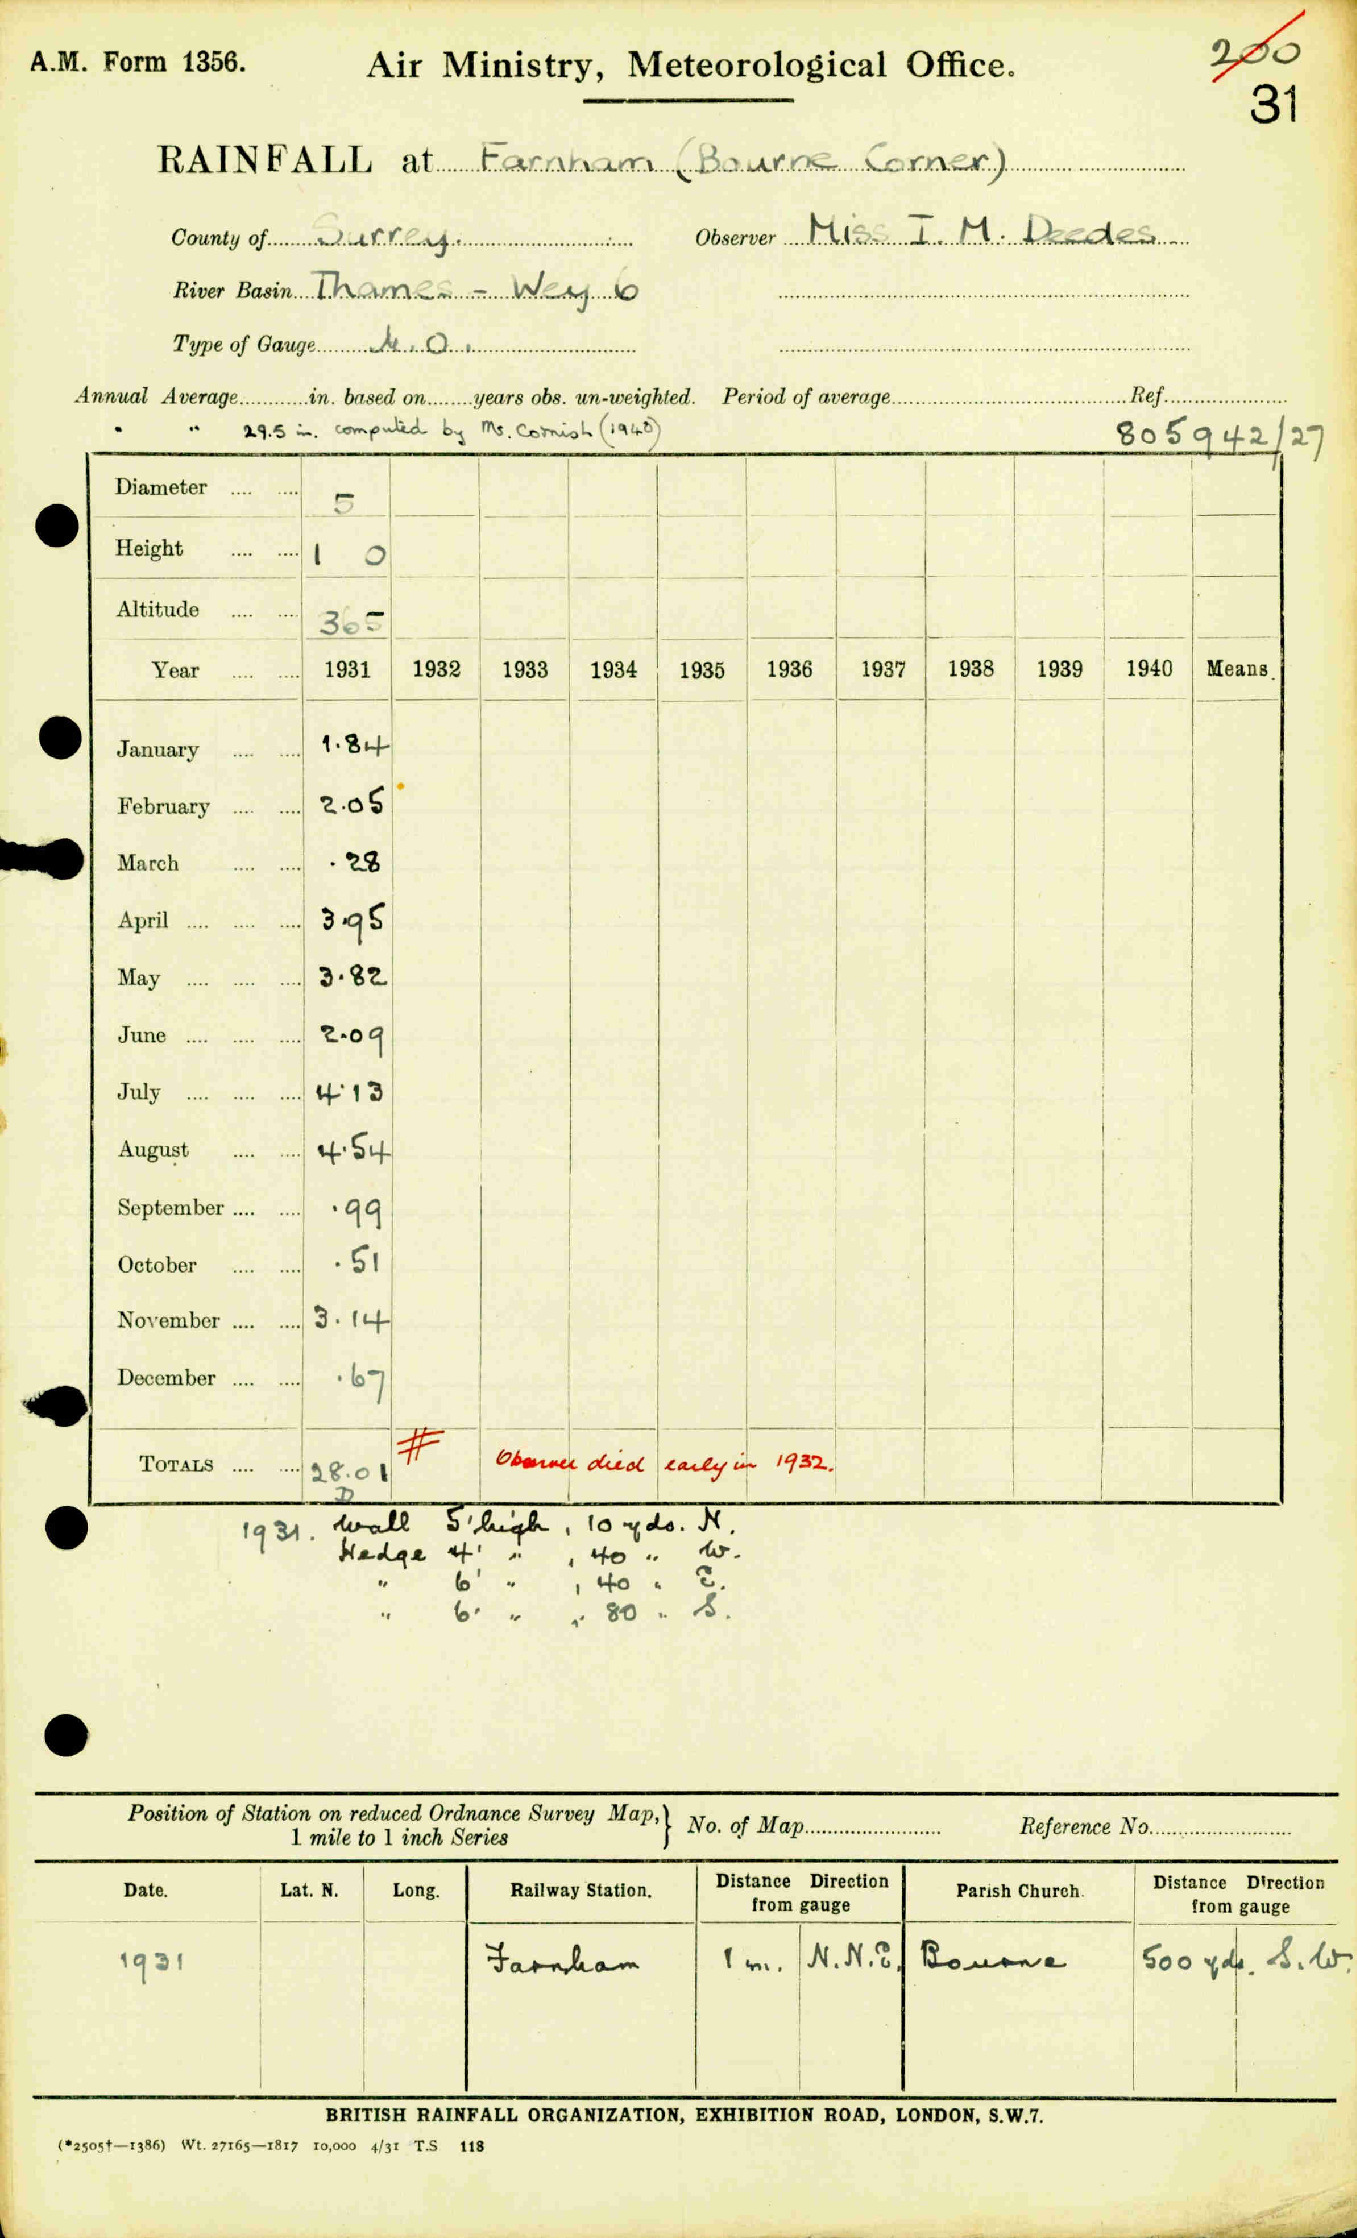 A.M. Form 1356.
Air Ministry, Meteorological Office.
200
31
RAINFALL at Farnham (Bourne Corner)
County of Surrey. Observer Miss I. M. Deedes
River Basin Thames - Wey 6
Type of Gauge M.O.
Annual Average............in. based on........years obs. un-weighted. Period of average........Ref........
" " 29.5 in. computed by Ms. Cornish (1940) 805942/27
Diameter .... .... 5
Height .... .... 1 0
Altitude .... .... 365
Year .... .... 1931 1932 1933 1934 1935 1936 1937 1938 1939 1940 Means.
January .... .... 1.84
February .... .... 2.05
March .... .... .28
April .... .... .... 3.95
May .... .... .... 3.82
June .... .... .... 2.09
July .... .... .... 4.13
August .... .... 4.54
September .... .... .99
October .... .... .51
November .... .... 3.14
December .... .... .67
TOTALS .... .... 28.01 # Observer died early in 1932.
D
1931. Wall 5' high, 10 yds. N.
Hedge 4' " , 40 " W.
" 6' " , 40 " E.
" 6' " , 80 " S.
Position of Station on reduced Ordnance Survey Map,} No. of Map........ Reference No.........
1 mile to 1 inch Series
Date. Lat. N. Long. Railway Station. Distance Direction from gauge Parish Church. Distance Direction from gauge
1931 Farnham 1 m. N.N.E. Bourne 500 yds. S.W.
BRITISH RAINFALL ORGANIZATION, EXHIBITION ROAD, LONDON, S.W.7.
(*2505†—1386) Wt. 27165—1817 10,000 4/31 T.S 118